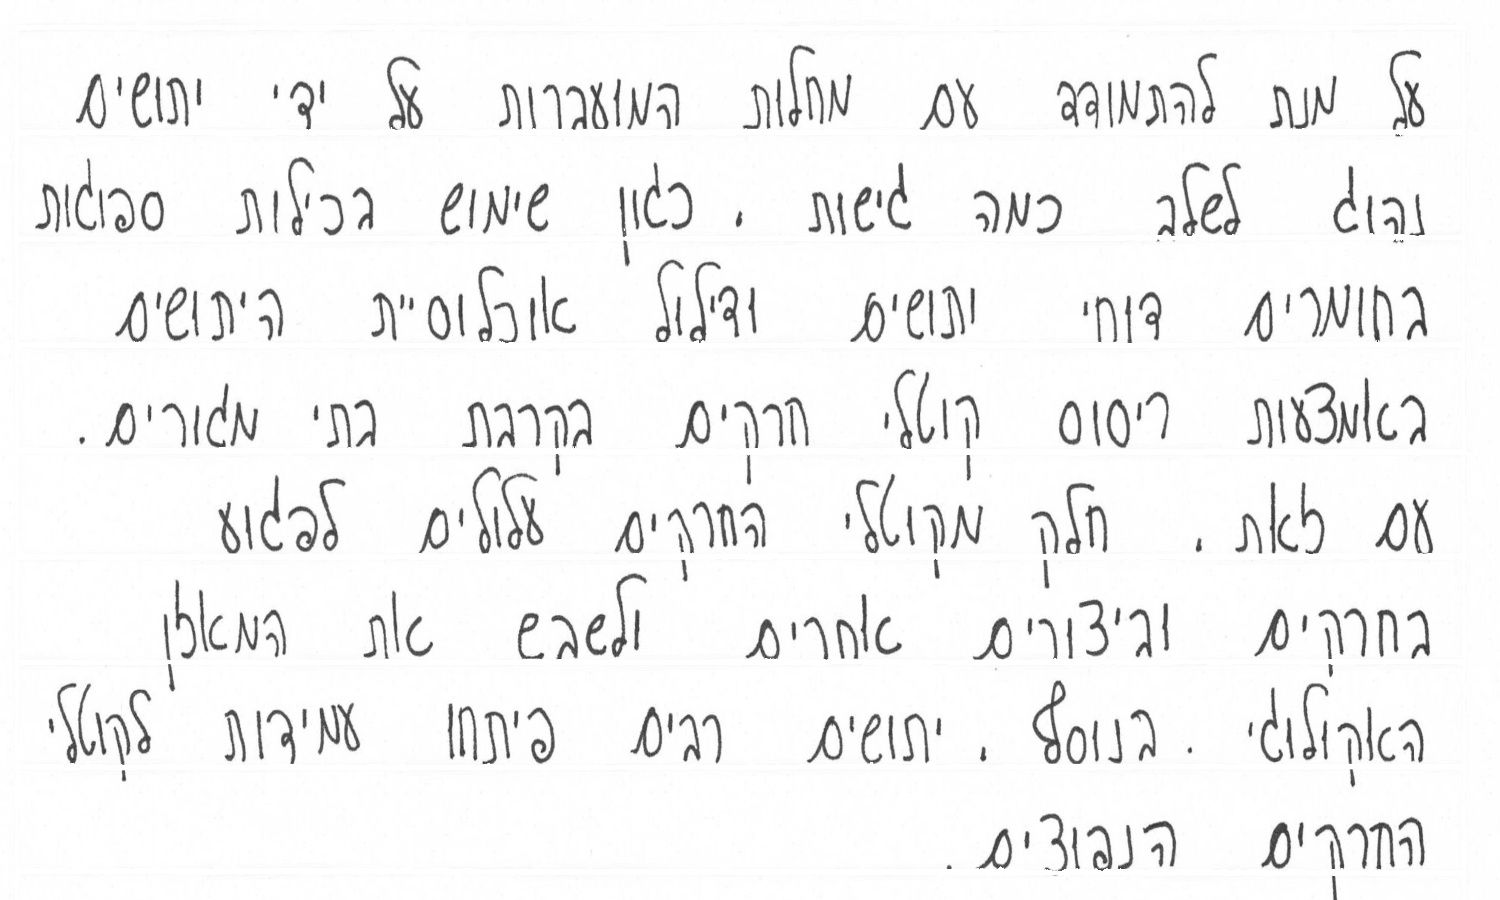 על מנת להתמודד עם מחלות המועברות על ידי יתושים
נהוג לשלב כמה גישות , כגון שימוש בכילות ספוגות
בחומרים דוחי יתושים ודילול אוכלוסיית היתושים
באמצעות ריסוס קוטלי חרקים בקרבת בתי מגורים .
עם זאת , חלק מקוטלי החרקים עלולים לפגוע
בחרקים וביצורים אחרים ולשבש את המאזן
האקולוגי . בנוסף , יתושים רבים פיתחו עמידות לקוטלי
החרקים הנפוצים .